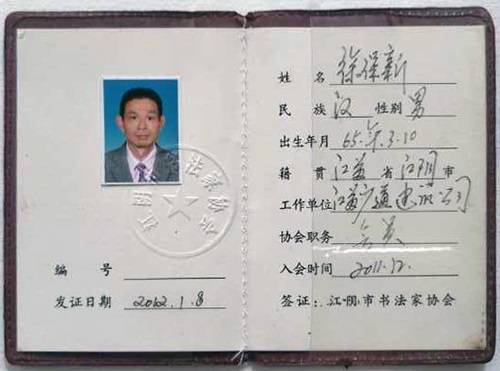 编 号
发证日期 2012.1.8
姓 名 徐保新
民 族 汉 性别 男
出生年月 65年.3.10
籍 贯 江苏 省 江阴 市
工作单位 江苏 建筑公司
协会职务 会员
入会时间 2011.12.
签证：江阴市书法家协会